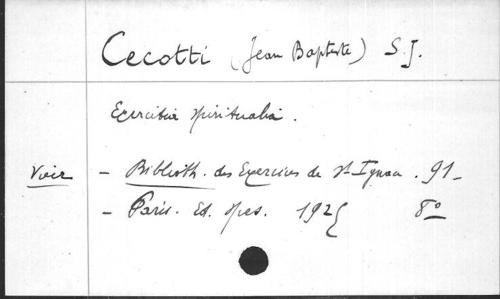 Cecotti (Jean Baptiste) S.J.
Exercitia spiritualia.
Voir - Biblioth. des Exercices de St Ignace. 91 -
- Paris. Ed. Spes. 1925 8º